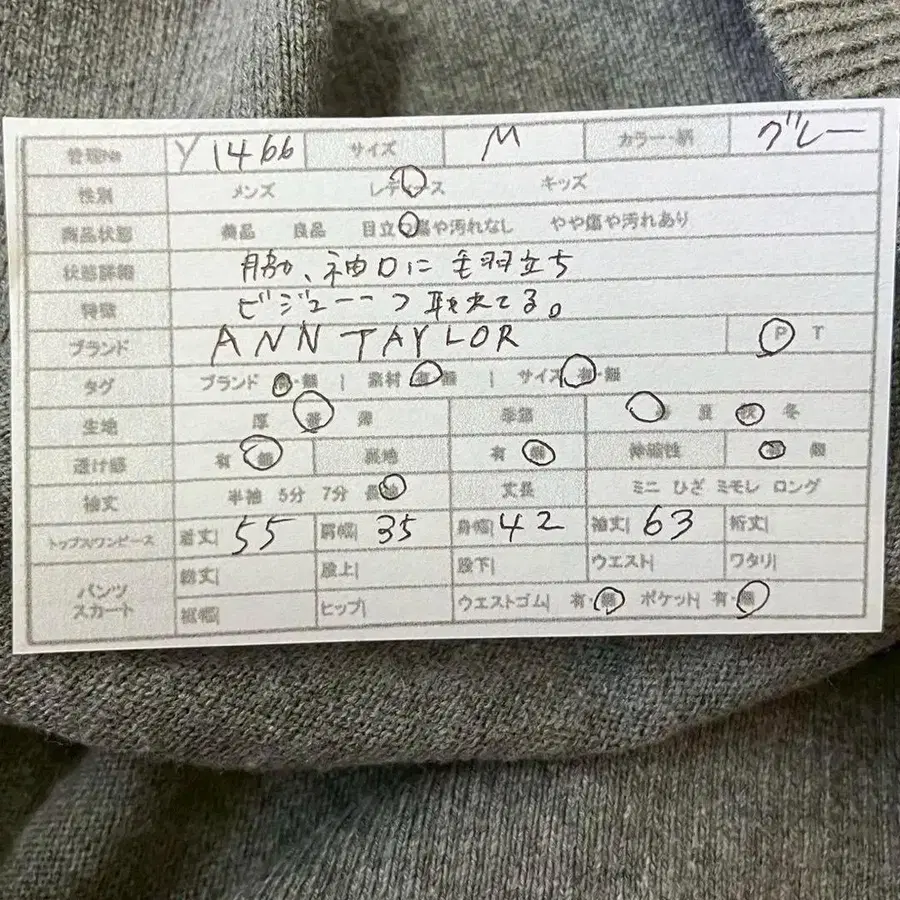 管理No Y1466 サイズ M カラー・柄 グレー
性別 メンズ レディース キッズ
商品状態 美品 良品 目立つ傷や汚れなし やや傷や汚れあり
状態詳細 脇、袖口に毛羽立ち
特徴 ビジュー一つ取れてる。
ブランド ANN TAYLOR P T
タグ ブランド 有・無 | 素材 有・無 | サイズ 有・無
生地 厚 普 薄 季節 春 夏 秋 冬
透け感 有 無 裏地 有 無 伸縮性 有 無
袖丈 半袖 5分 7分 長袖 丈長 ミニ ひざ ミモレ ロング
トップス/ワンピース 着丈| 55 肩幅| 35 身幅| 42 袖丈| 63 裄丈|
パンツ スカート 総丈| 股上| 股下| ウエスト| ワタリ|
裾幅| ヒップ| ウエストゴム| 有・無 ポケット| 有・無